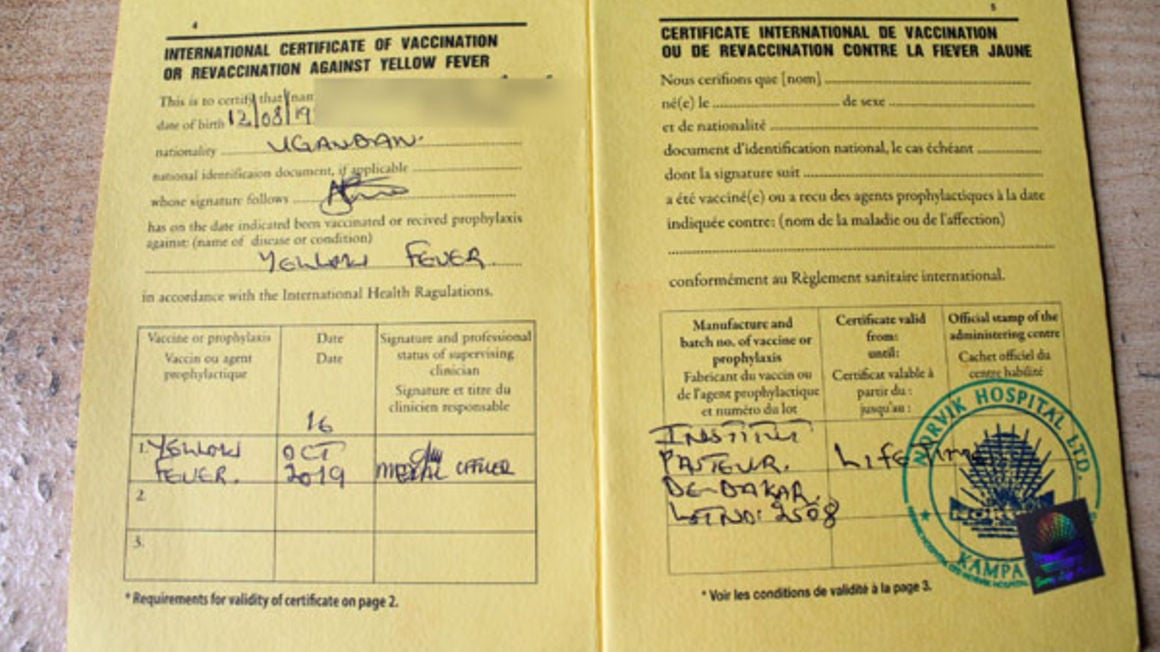 4
INTERNATIONAL CERTIFICATE OF VACCINATION
OR REVACCINATION AGAINST YELLOW FEVER
This is to certify that nam
date of birth 12/08/19
nationality UGANDAN.
national identificaion document, if applicable
whose signature follows
has on the date indicated been vaccinated or recived prophylaxis
against: (name of disease or condition)
YELLOW FEVER.
in accordance with the International Health Ragulations.
Vaccine or prophylaxis
Vaccin ou agent
prophylactique
Date
Date
Signature and professional
status of supervising
clinician
Signature et titre du
clinicien responsable
1. YELLOW
FEVER.
16
OCT
2019
MEDICAL OFFICER
2.
3.
* Requirements for validity of certificate on page 2.
5
CERTIFICATE INTERNATIONAL DE VACCINATION
OU DE REVACCINATION CONTRE LA FIEVER JAUNE
Nous cerifions que [nom]
né(e) le de sexe
et de nationalité
document d'identification national, le cas échéant
dont la signature suit
a été vacciné(e) ou a recu des agents prophylactiques à la date
indiquée contre: (nom de la maladie ou de l'affection)
conformément au Règlement sanitaire international.
Manufacture and
batch no. of vaccine or
prophylaxis
Fabricant du vaccin ou
de l'agent prophylactique
et numéro du lot
Certificate valid
from:
until:
Certificat valable à
partir du :
jusqu'au :
Official stamp of the
administering centre
Cachet officiel du
centre habilité
INSTITUT
PASTEUR.
DE-DAKAR.
LOT NO: 2508
LIFE Time
NORVIK HOSPITAL LTD.
NORVIK
KAMPA
* Voir les conditions de validité à la page 3.